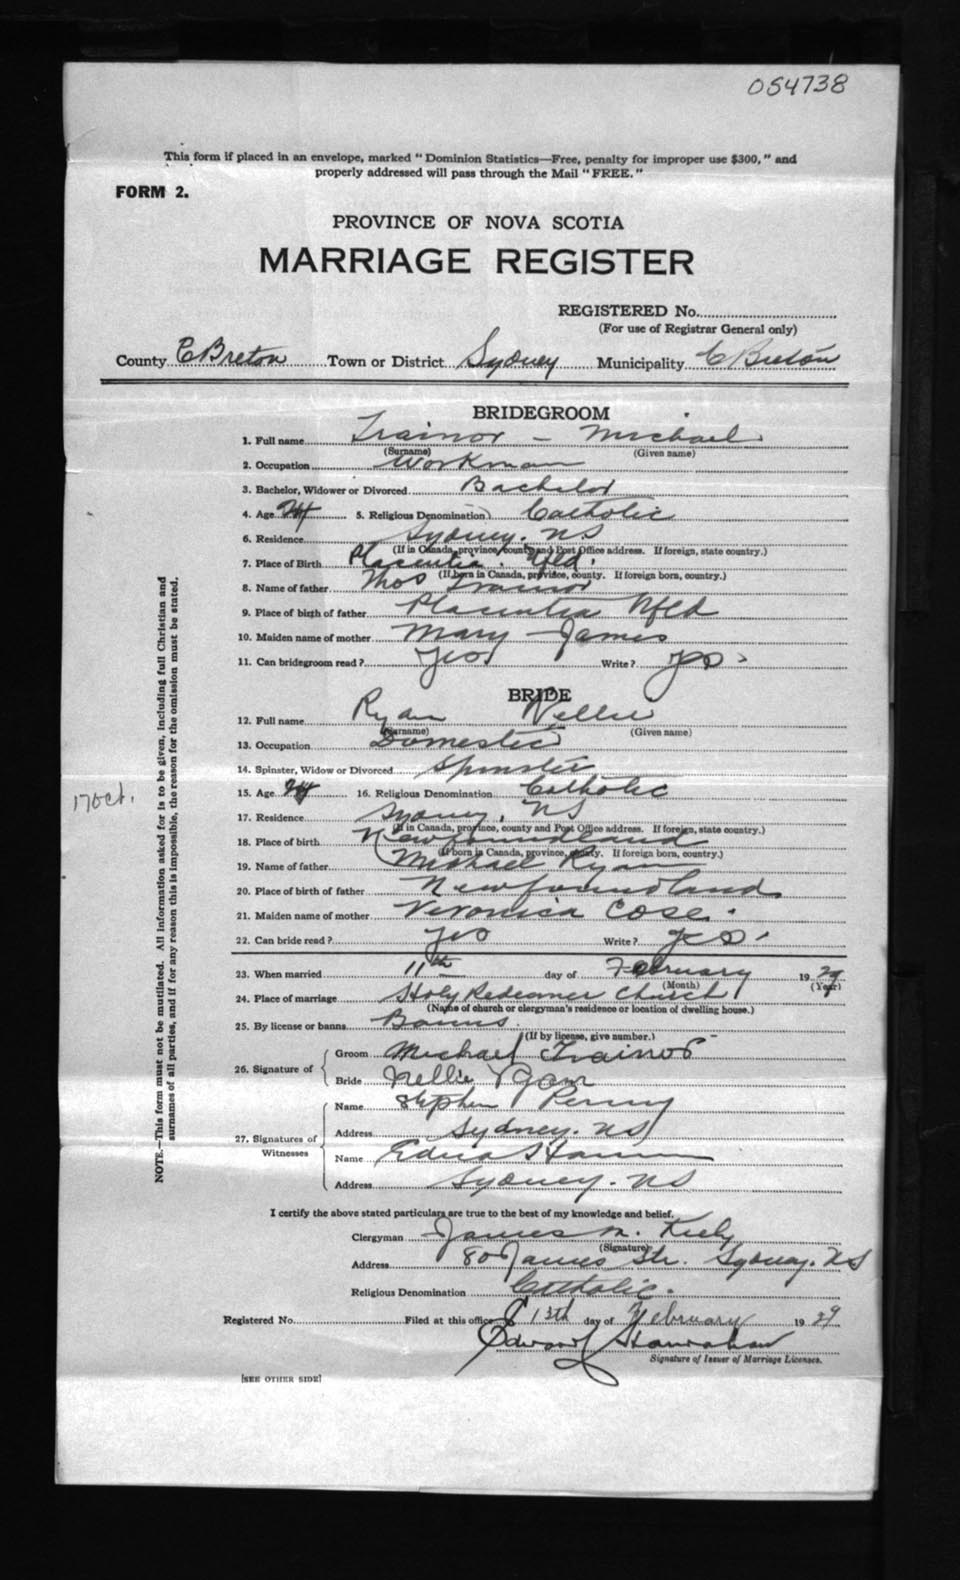 054738
This form if placed in an envelope, marked "Dominion Statistics—Free, penalty for improper use $300," and
properly addressed will pass through the Mail "FREE."
FORM 2.
PROVINCE OF NOVA SCOTIA
MARRIAGE REGISTER
REGISTERED No.
(For use of Registrar General only)
County C Breton Town or District Sydney Municipality C Breton
BRIDEGROOM
1. Full name Trainor - Michael
(Surname) (Given name)
2. Occupation Workman
3. Bachelor, Widower or Divorced Bachelor
4. Age 24 5. Religious Denomination Catholic
6. Residence Sydney. NS
(If in Canada, province, county and Post Office address. If foreign, state country.)
7. Place of Birth Placentia. Nfld.
(If born in Canada, province, county. If foreign born, country.)
8. Name of father Thos Trainor
9. Place of birth of father Placentia Nfld
10. Maiden name of mother Mary James
11. Can bridegroom read? Yes Write? yes
BRIDE
12. Full name Ryan Nellie
(Surname) (Given name)
13. Occupation Domestic
14. Spinster, Widow or Divorced Spinster
15. Age 24 16. Religious Denomination Catholic
17. Residence Sydney, NS
(If in Canada, province, county and Post Office address. If foreign, state country.)
18. Place of birth Newfoundland
(If born in Canada, province, county. If foreign born, country.)
19. Name of father Michael Ryan
20. Place of birth of father Newfoundland
21. Maiden name of mother Veronica Cose.
22. Can bride read? yes Write? yes.
23. When married 11th day of February 1929
(Month) (Year)
24. Place of marriage Holy Redeemer Church
(Name of church or clergyman's residence or location of dwelling house.)
25. By license or banns Banns.
(If by license, give number.)
26. Signature of
Groom Michael Trainor
Bride Nellie Ryan
27. Signatures of Witnesses
Name Stephen Penny
Address Sydney. NS
Name Edna
Address Sydney. NS
I certify the above stated particulars are true to the best of my knowledge and belief.
Clergyman James M. Kiely
(Signature)
Address 80 James Str. Sydney. NS
Religious Denomination Catholic.
Registered No. Filed at this office 13th day of February 1929
Edward Hanrahan
Signature of Issuer of Marriage Licenses.
[SEE OTHER SIDE]
NOTE.—This form must not be mutilated. All information asked for is to be given, including full Christian and
surnames of all parties, and if for any reason this is impossible, the reason for the omission must be stated.
17 Oct.